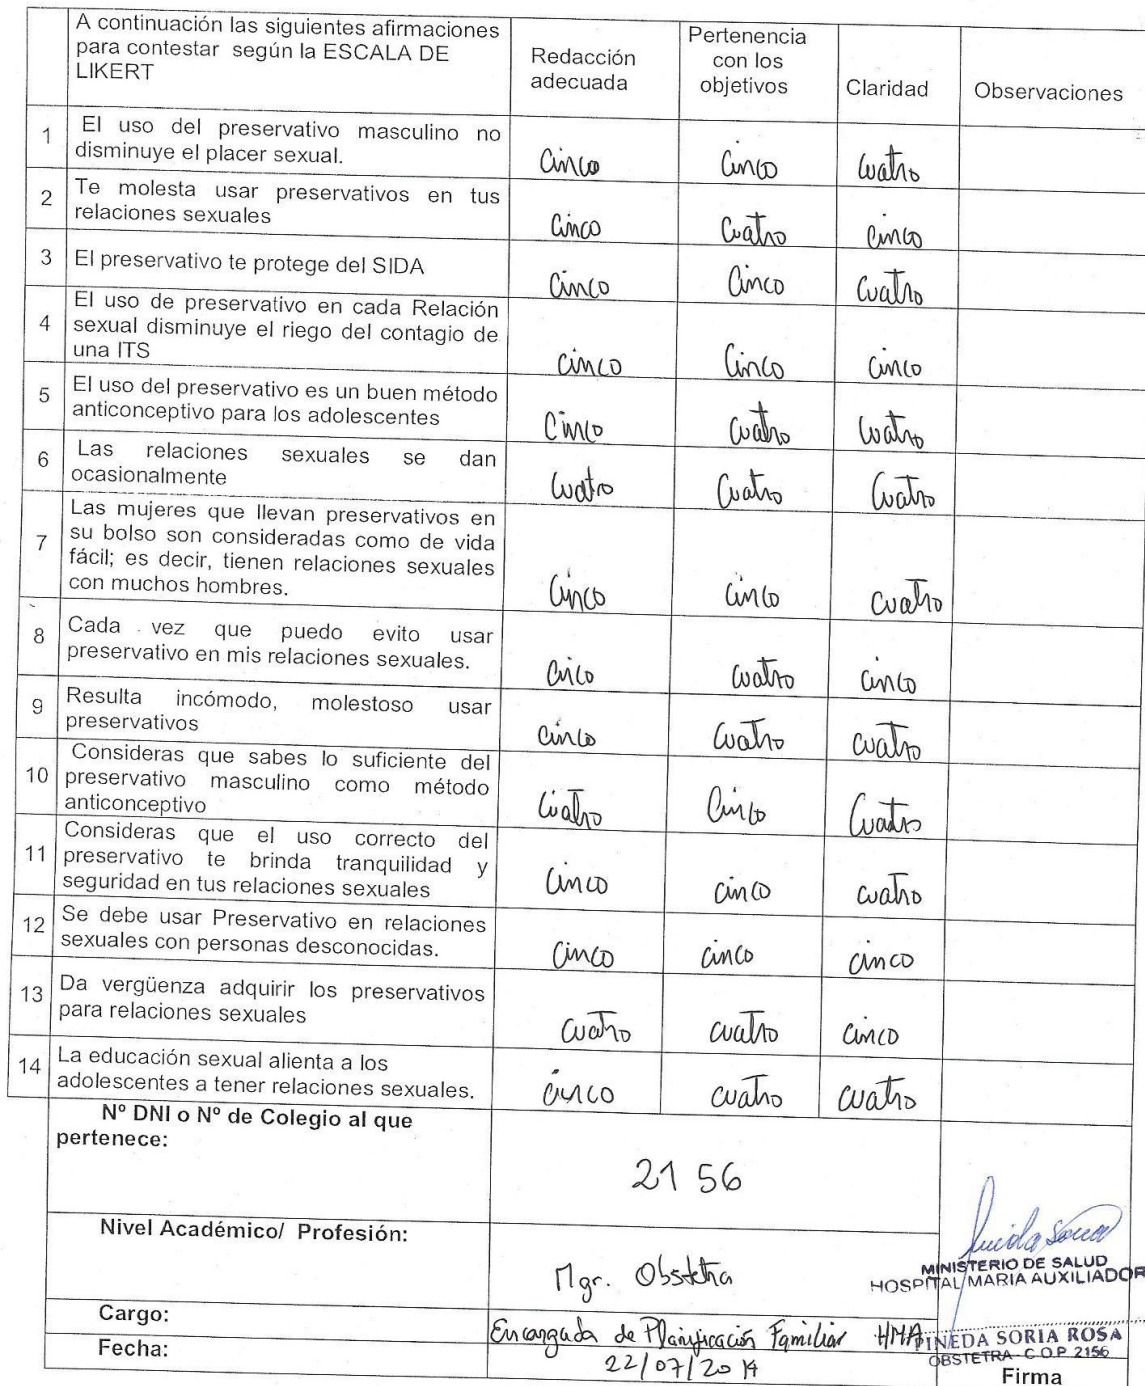 A continuación las siguientes afirmaciones
para contestar según la ESCALA DE
LIKERT
Redacción
adecuada
Pertenencia
con los
objetivos
Claridad
Observaciones
1
El uso del preservativo masculino no
disminuye el placer sexual.
Cinco
Cinco
Cuatro
2
Te molesta usar preservativos en tus
relaciones sexuales
Cinco
Cuatro
Cinco
3
El preservativo te protege del SIDA
Cinco
Cinco
Cuatro
4
El uso de preservativo en cada Relación
sexual disminuye el riego del contagio de
una ITS
cinco
Cinco
cinco
5
El uso del preservativo es un buen método
anticonceptivo para los adolescentes
Cinco
Cuatro
Cuatro
6
Las relaciones sexuales se dan
ocasionalmente
Cuatro
Cuatro
Cuatro
7
Las mujeres que llevan preservativos en
su bolso son consideradas como de vida
fácil; es decir, tienen relaciones sexuales
con muchos hombres.
Cinco
cinco
cuatro
8
Cada vez que puedo evito usar
preservativo en mis relaciones sexuales.
Cinco
cuatro
cinco
9
Resulta incómodo, molestoso usar
preservativos
cinco
Cuatro
cuatro
10
Consideras que sabes lo suficiente del
preservativo masculino como método
anticonceptivo
Cuatro
Cinco
Cuatro
11
Consideras que el uso correcto del
preservativo te brinda tranquilidad y
seguridad en tus relaciones sexuales
Cinco
cinco
cuatro
12
Se debe usar Preservativo en relaciones
sexuales con personas desconocidas.
Cinco
cinco
cinco
13
Da vergüenza adquirir los preservativos
para relaciones sexuales
cuatro
cuatro
cinco
14
La educación sexual alienta a los
adolescentes a tener relaciones sexuales.
cinco
cuatro
cuatro
Nº DNI o Nº de Colegio al que
pertenece:
2156
Nivel Académico/ Profesión:
Mgr. Obstetra
MINISTERIO DE SALUD
HOSPITAL MARIA AUXILIADOR
Cargo:
Encargada de Planificación Familiar HMA
PINEDA SORIA ROSA
OBSTETRA - C.O.P. 2156
Fecha:
22/07/2014
Firma